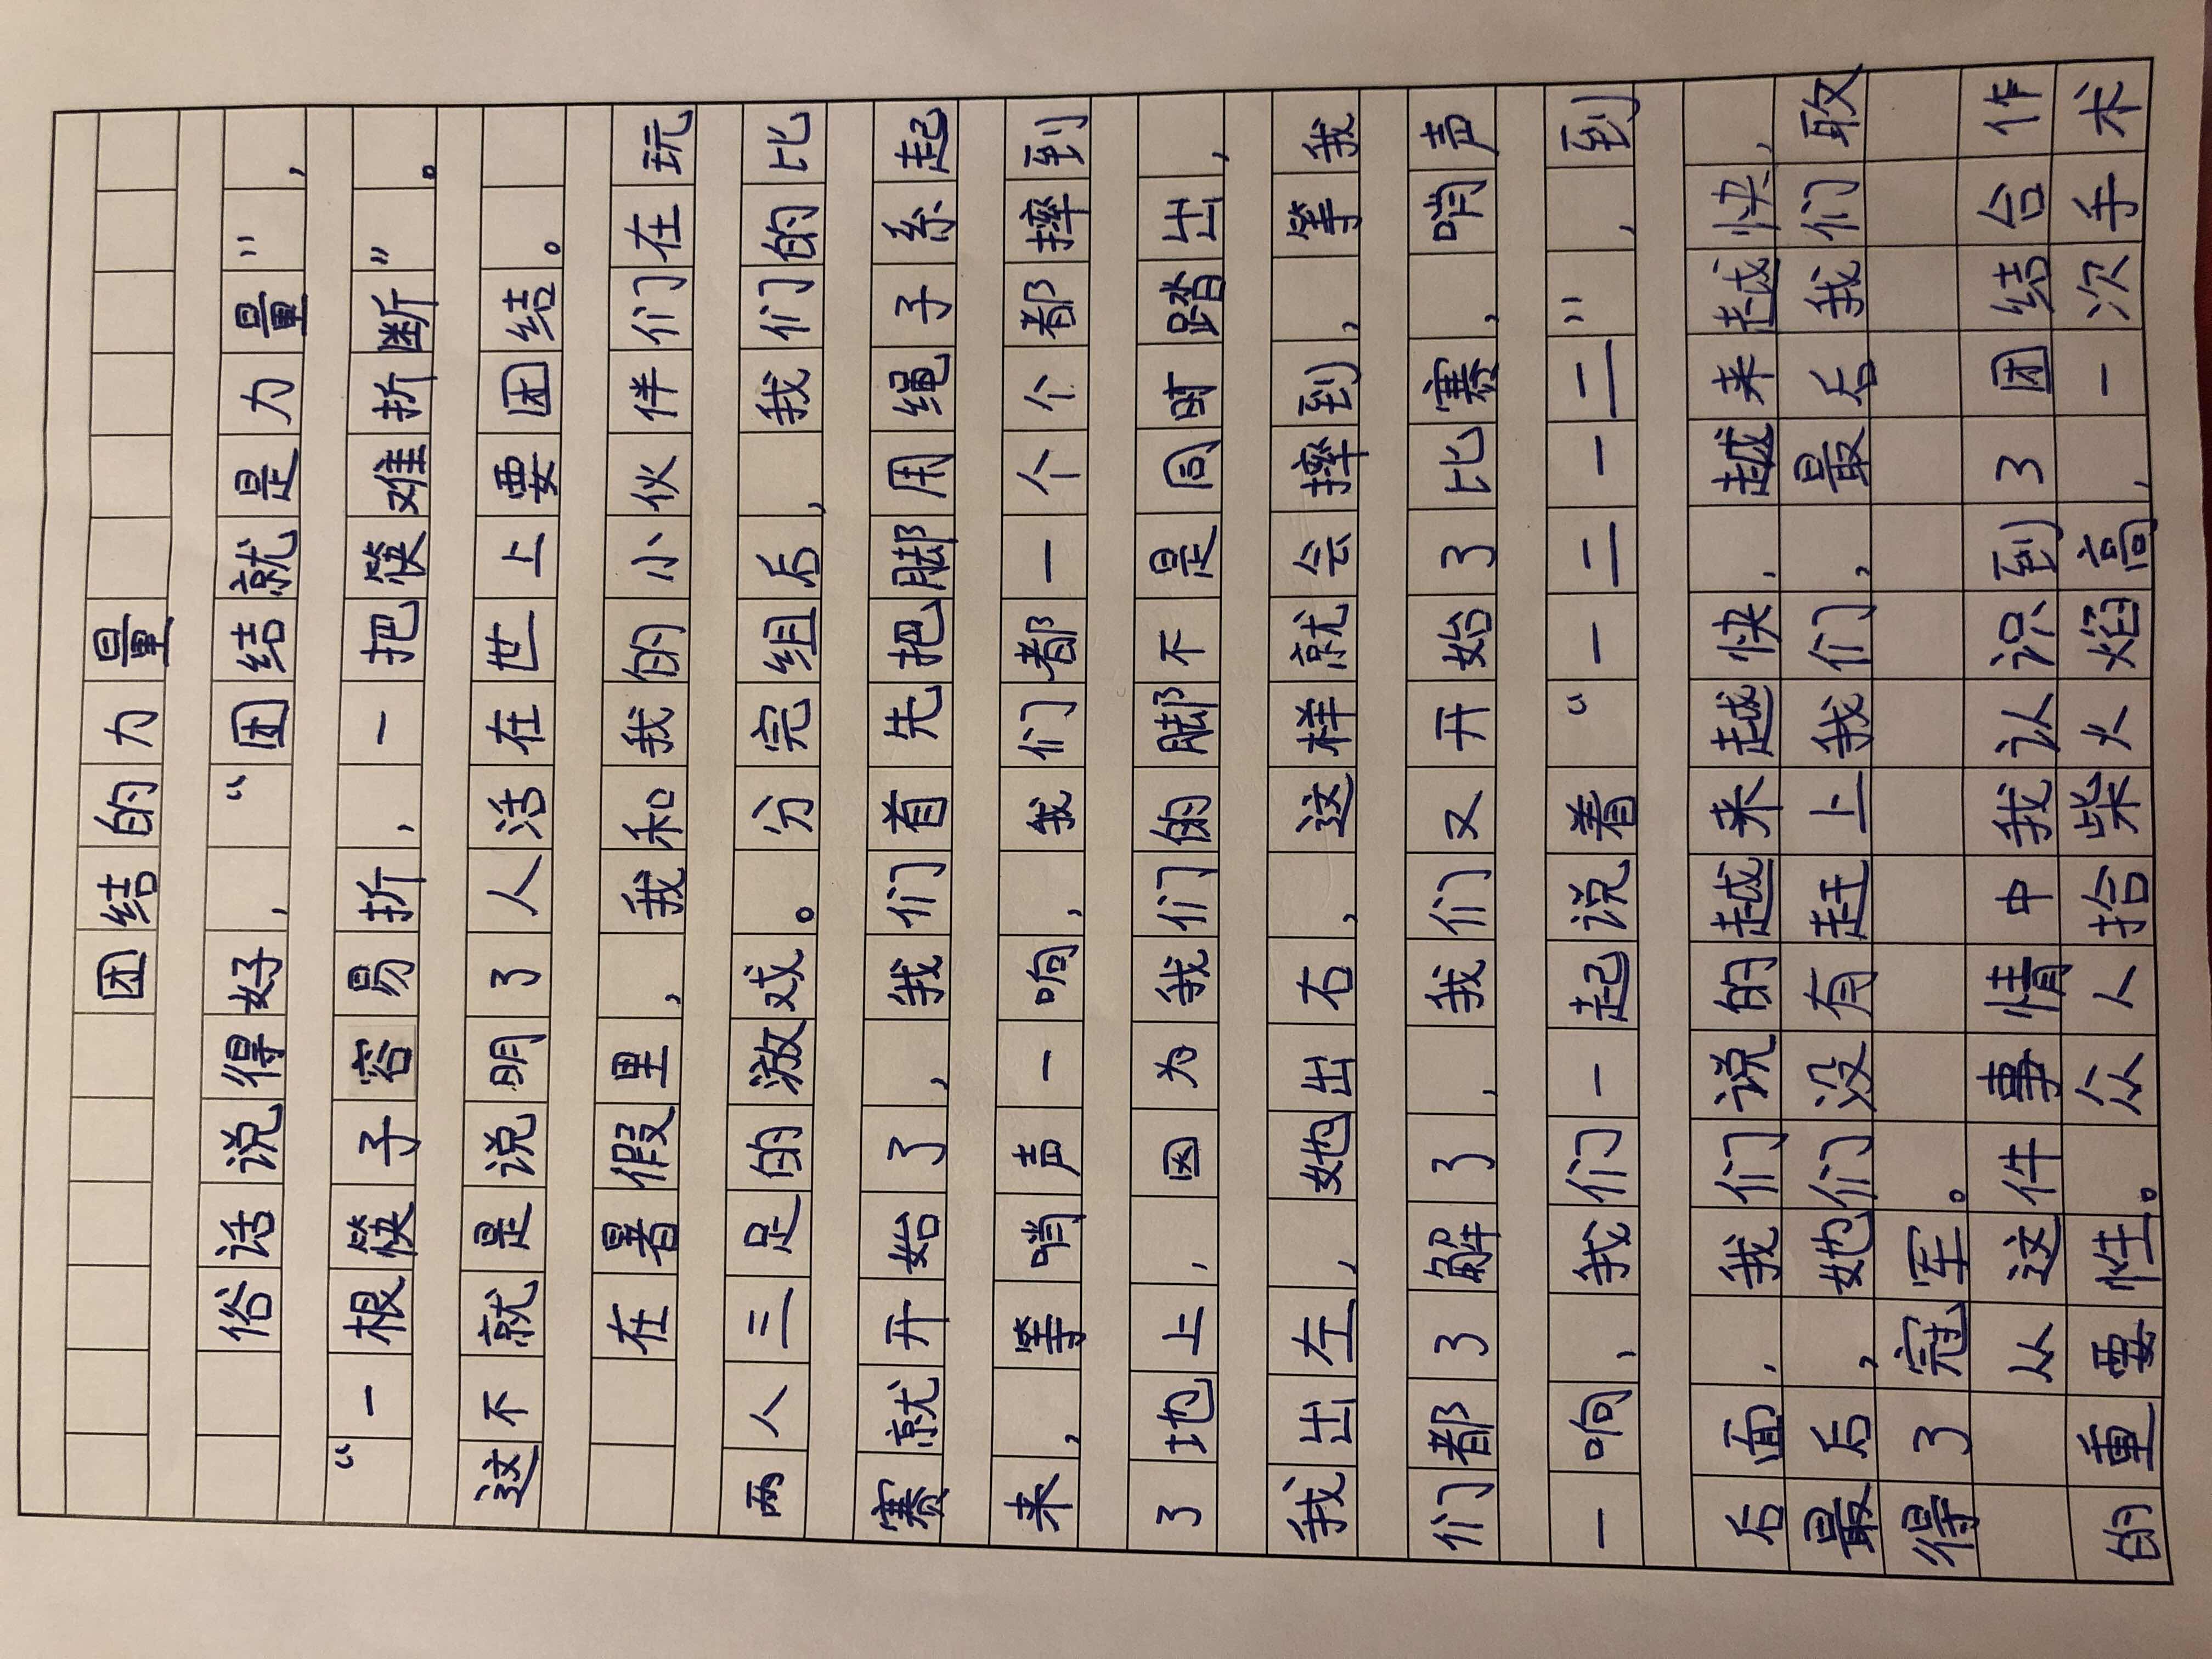 团结的力量
俗话说得好，“团结就是力量”，
“一根筷子容易折，一把筷难折断”。
这不就是说明了人活在世上要团结。
在暑假里，我和我的小伙伴们在玩
两人三足的游戏。分完组后，我们的比
赛就开始了，我们首先把脚用绳子系起
来，等哨声一响，我们都一个个都摔到
了地上，因为我们的脚不是同时踏出，
我出左，她出右，这样就会摔到，等我
们都了解了，我们又开始了比赛，哨声
一响，我们一起说着“一二一二”，到
后面，我们说的越来越快，越来越快，
最后，她们没有赶上我们，最后我们取
得了冠军。
从这件事情中我认识到了团结合作
的重要性。众人抬柴火焰高，一次手术